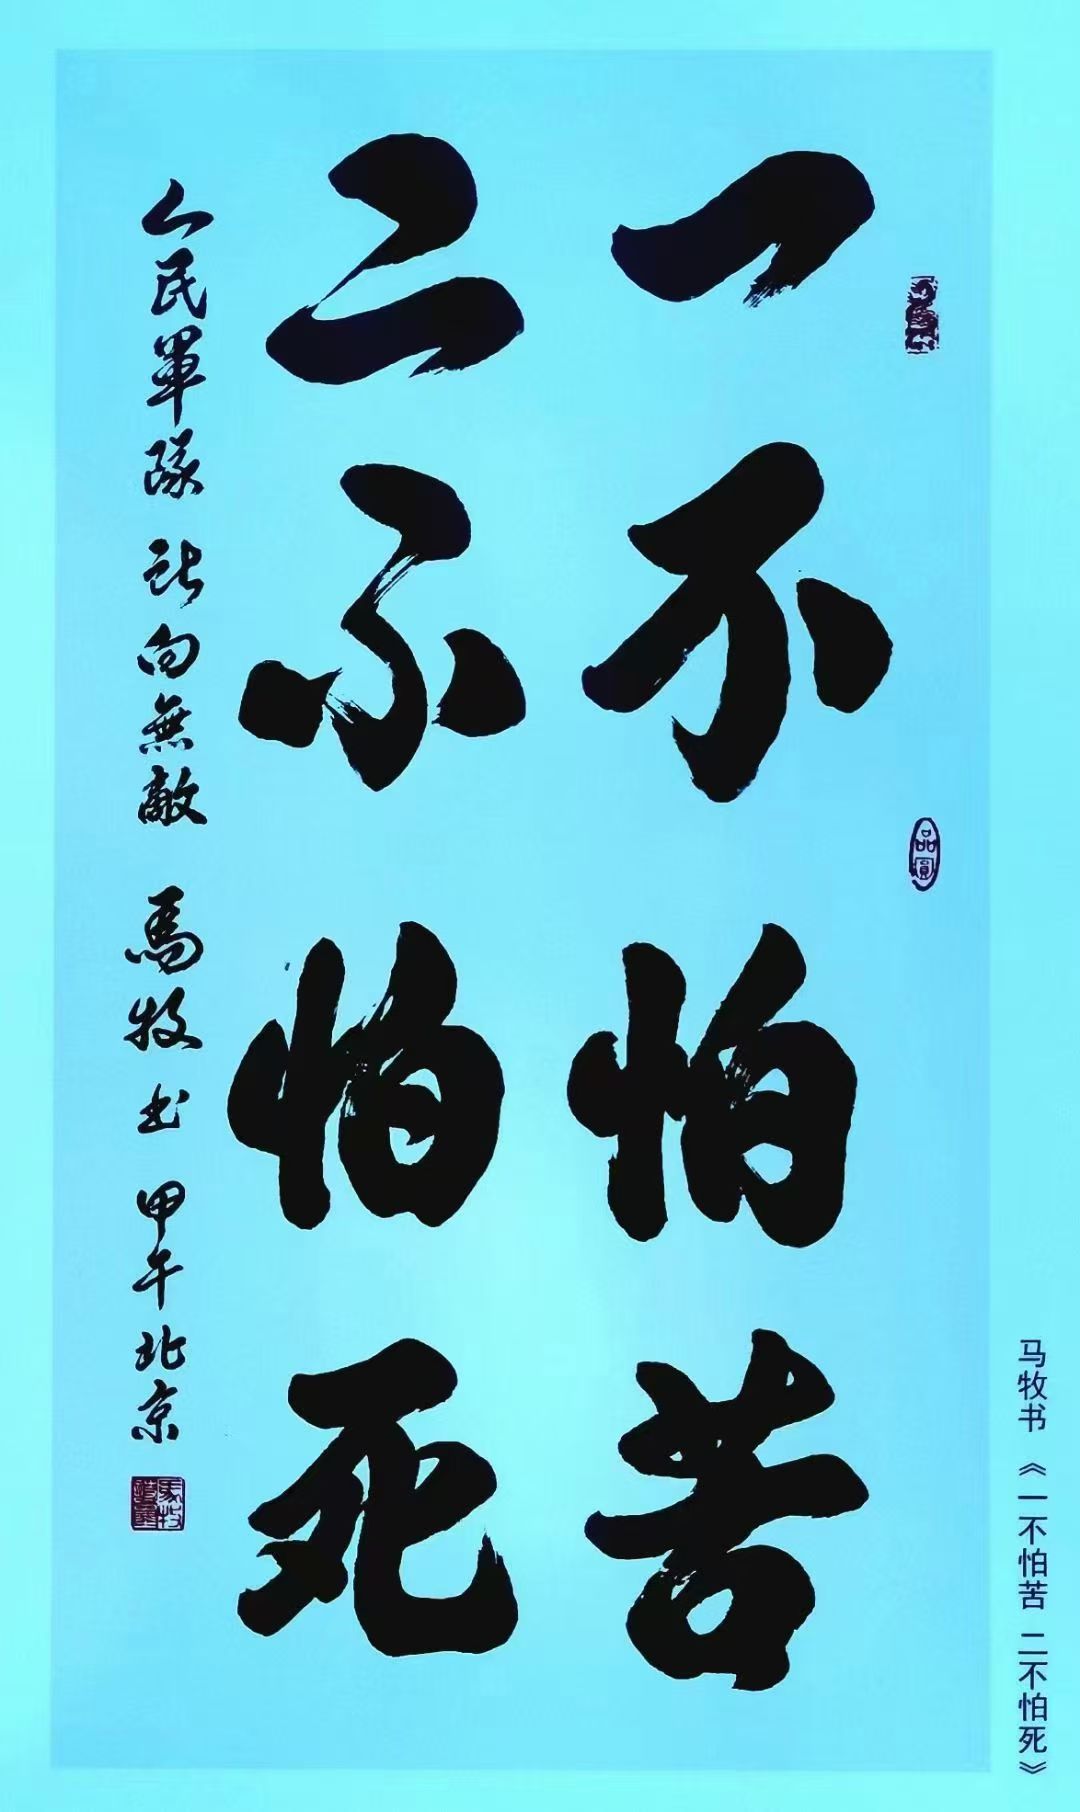 一不怕苦
二不怕死
人民軍隊 所向無敵 馬牧书 甲午北京
品圓
马牧书 《一不怕苦 二不怕死》